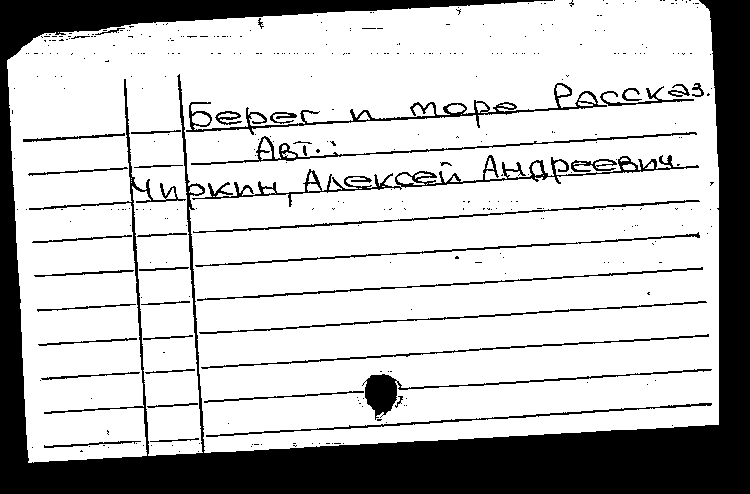 Берег и море Рассказ.
Авт.:
Чиркин, Алексей Андреевич.